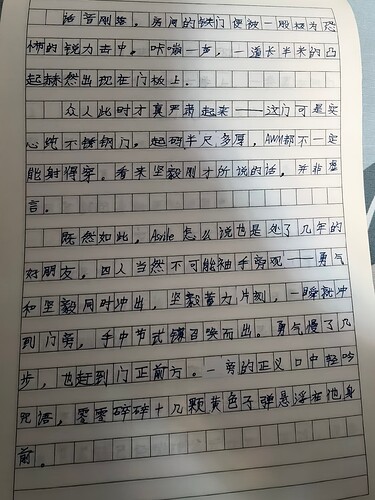 话音刚落，房间的铁门便被一股极为恐
怖的锐力击中。咔嘣一声，一道长半米的凸
起赫然出现在门板上。
众人此时才真严肃起来——这门可是实
心纯不锈钢门。起码半尺多厚，AWM都不一定
能射得穿。看来坚毅刚才所说的话，并非虚
言。
既然如此，Asile怎么说也是处了几年的
好朋友，四人当然不可能袖手旁观——勇气
和坚毅同时冲出，坚毅蓄力片刻，一瞬就冲
到门旁，手中节式镰召唤而出。勇气慢了几
步，也赶到门正前方。一旁的正义口中轻吟
咒语，零零碎碎十几颗黄色子弹悬浮在他身
前。